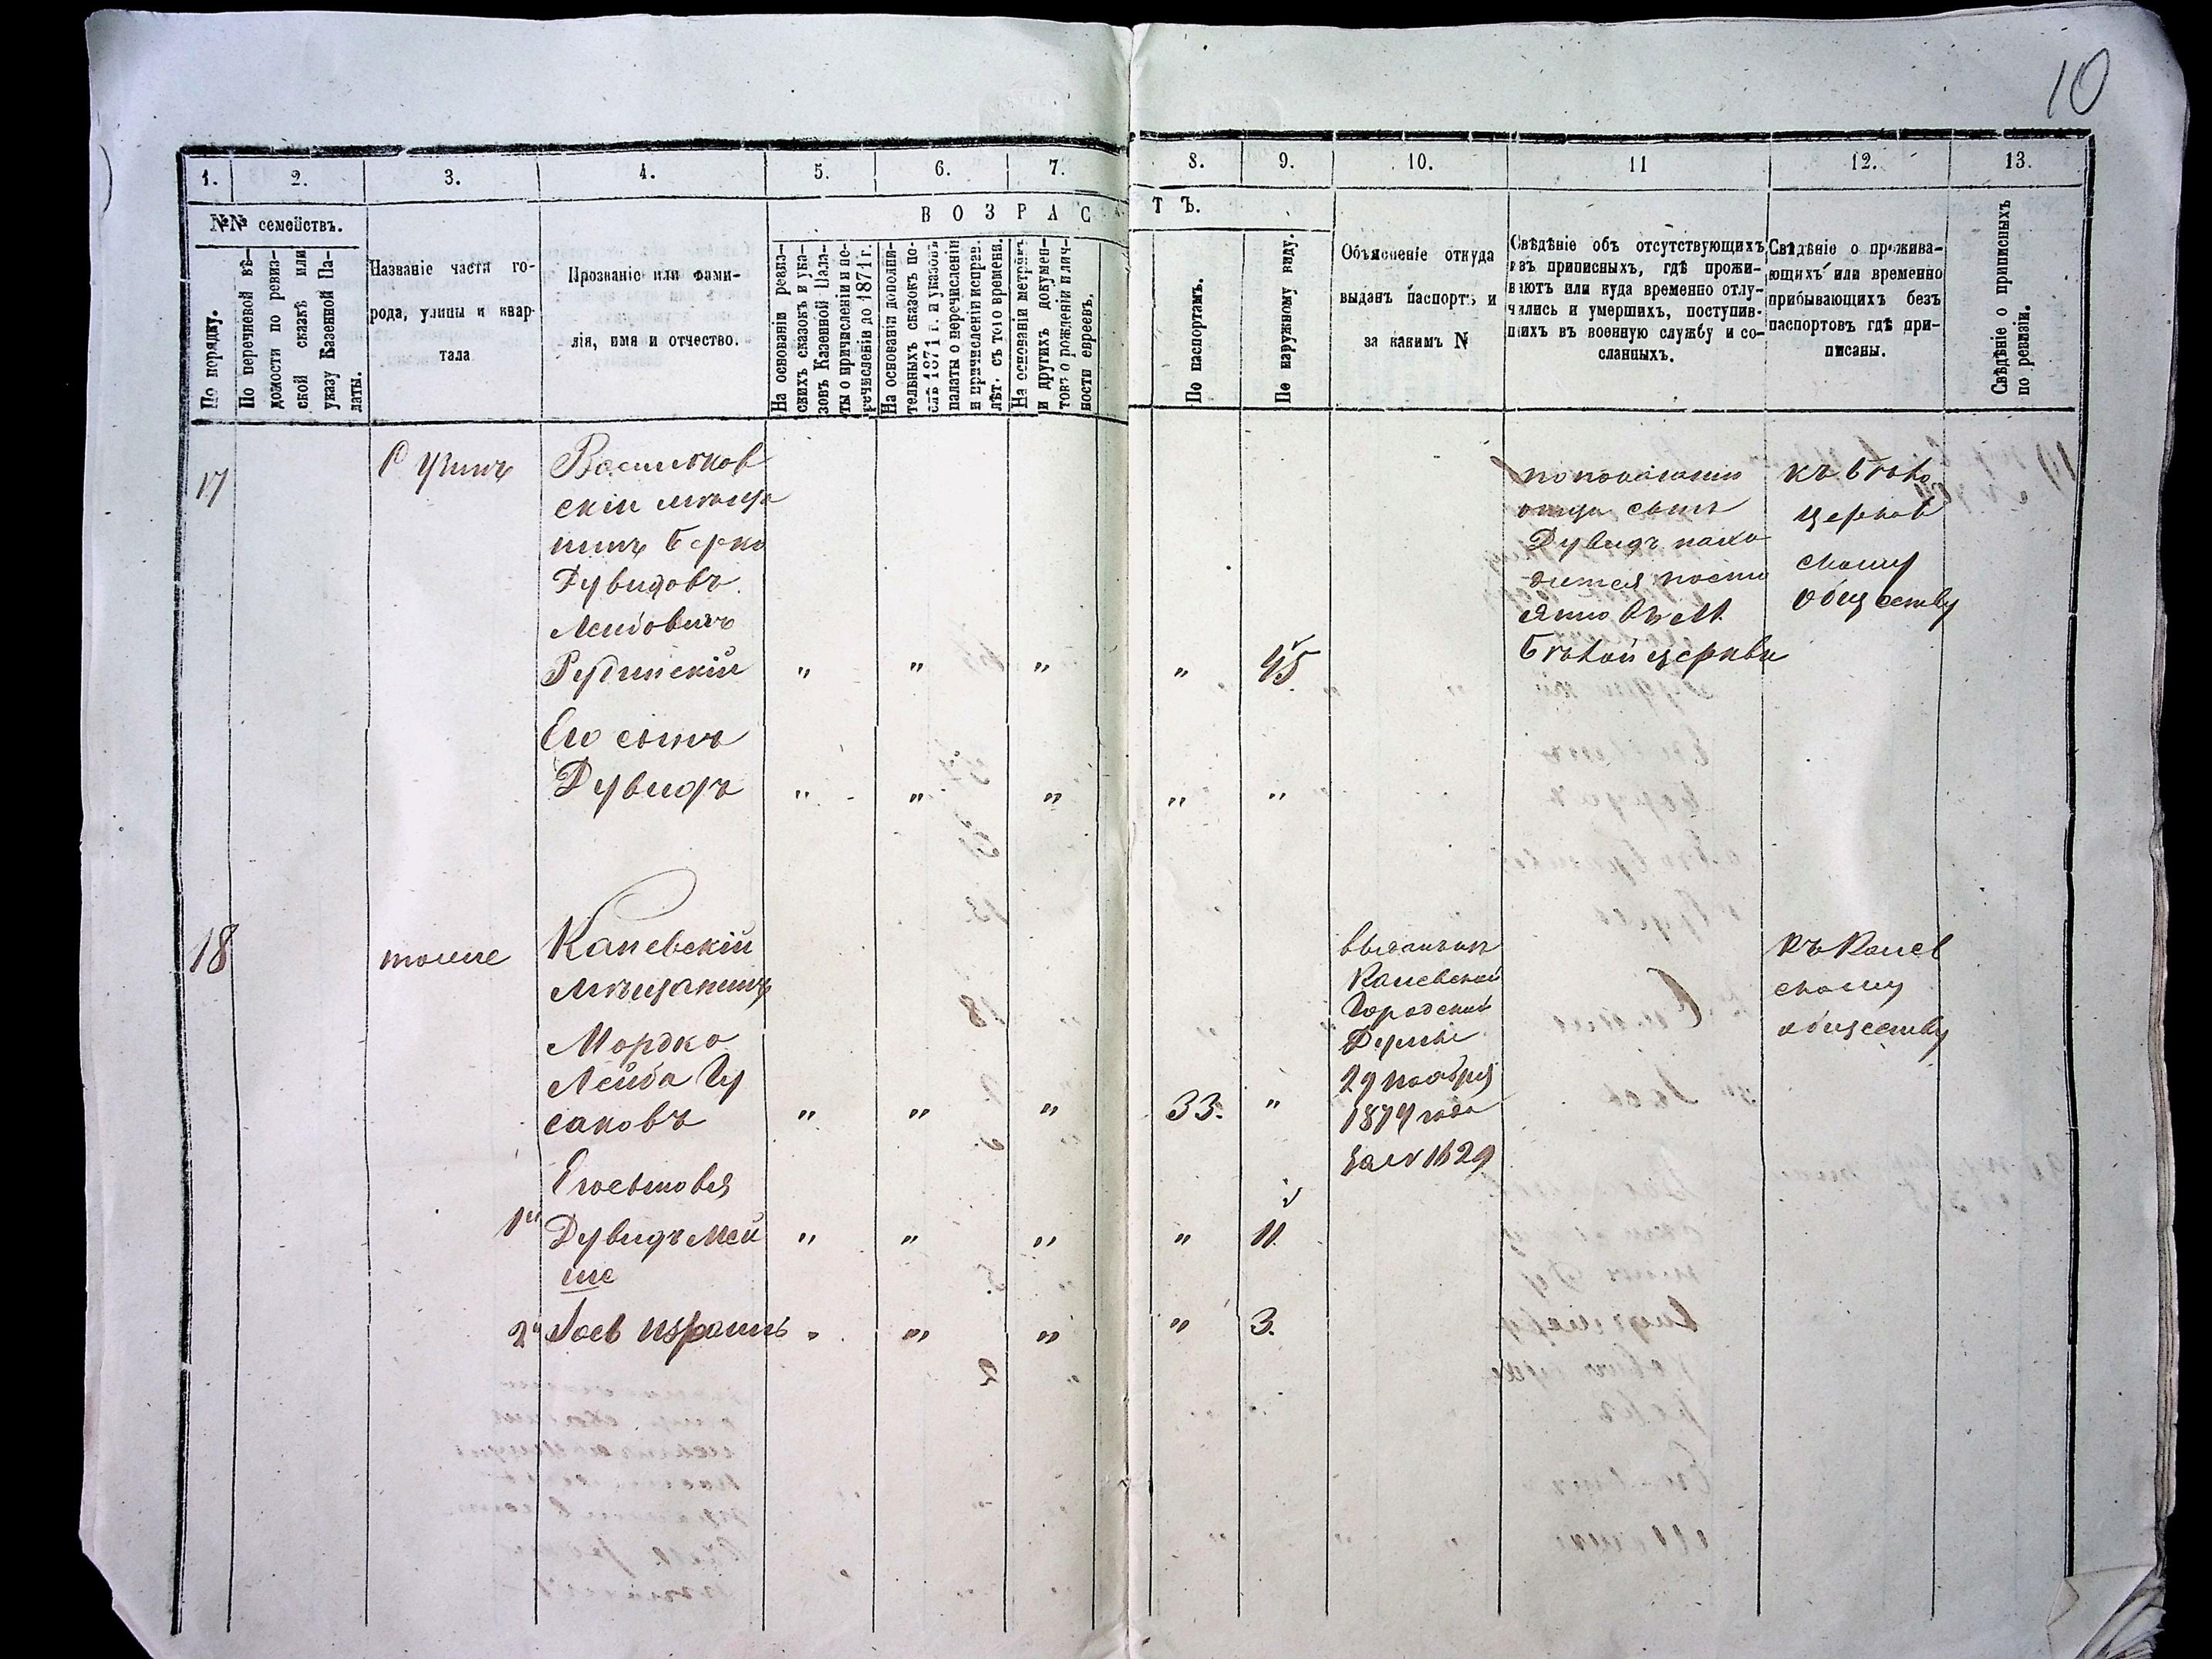 10
1. 2. 3. 4. 5. 6. 7. 8. 9. 10. 11 12. 13.
№№ семействъ.
По порядку.
По перечневой вѣ-
домости по ревиз-
ской сказкѣ или
указу Казенной Па-
латы.
Названіе части го-
рода, улицы и квар-
тала
Прозваніе или фами-
лія, имя и отчество.
ВОЗРАСТЪ.
На основаніи ревиз-
скихъ сказокъ и ука-
зовъ Казенной Пала-
ты о причисленіи и пе-
речисленіи до 1871 г.
На основаніи дополни-
тельныхъ сказокъ по-
слѣ 1871 г. и указовъ
палаты о перечисленіи
и причисленіи исправ.
лѣт. съ того времени.
На основаніи метрикъ
и другихъ докумен-
товъ о рожденіи и лич-
ности евреевъ.
По паспортамъ.
По наружному виду.
Объясненіе откуда
выданъ паспортъ и
за какимъ N
Свѣдѣніе объ отсутствующихъ
изъ приписныхъ, гдѣ прожи-
ваютъ или куда временно отлу-
чились и умершихъ, поступив-
шихъ въ военную службу и со-
сланныхъ.
Свѣдѣніе о прожива-
ющихъ или временно
прибывающихъ безъ
паспортовъ гдѣ при-
писаны.
Свѣдѣніе о приписныхъ
по ревизіи.
17
Васильков
скій мѣща
нинъ Берко
Дувидовъ
Лейбовичъ
" " " " 45
Его сынъ
Дувидъ " " " " "
по показанію
отца сынъ
Дувидъ нахо
дится посто
янно въ м.
Бѣлой церкви
къ бѣло
церков
скому
обществу
18
тоже
Каневскій
мѣщанинъ
Мордко
Лейба Гу
саковъ " " " 33. "
Его сыновья
1й Дувидъ Мей " " " " 11
ше
2й Іосъ Израиль " " " " 3.
Каневской
Городской
Думы
29 ноября
1874 года
за N 1629
къ Канев
скому
обществу